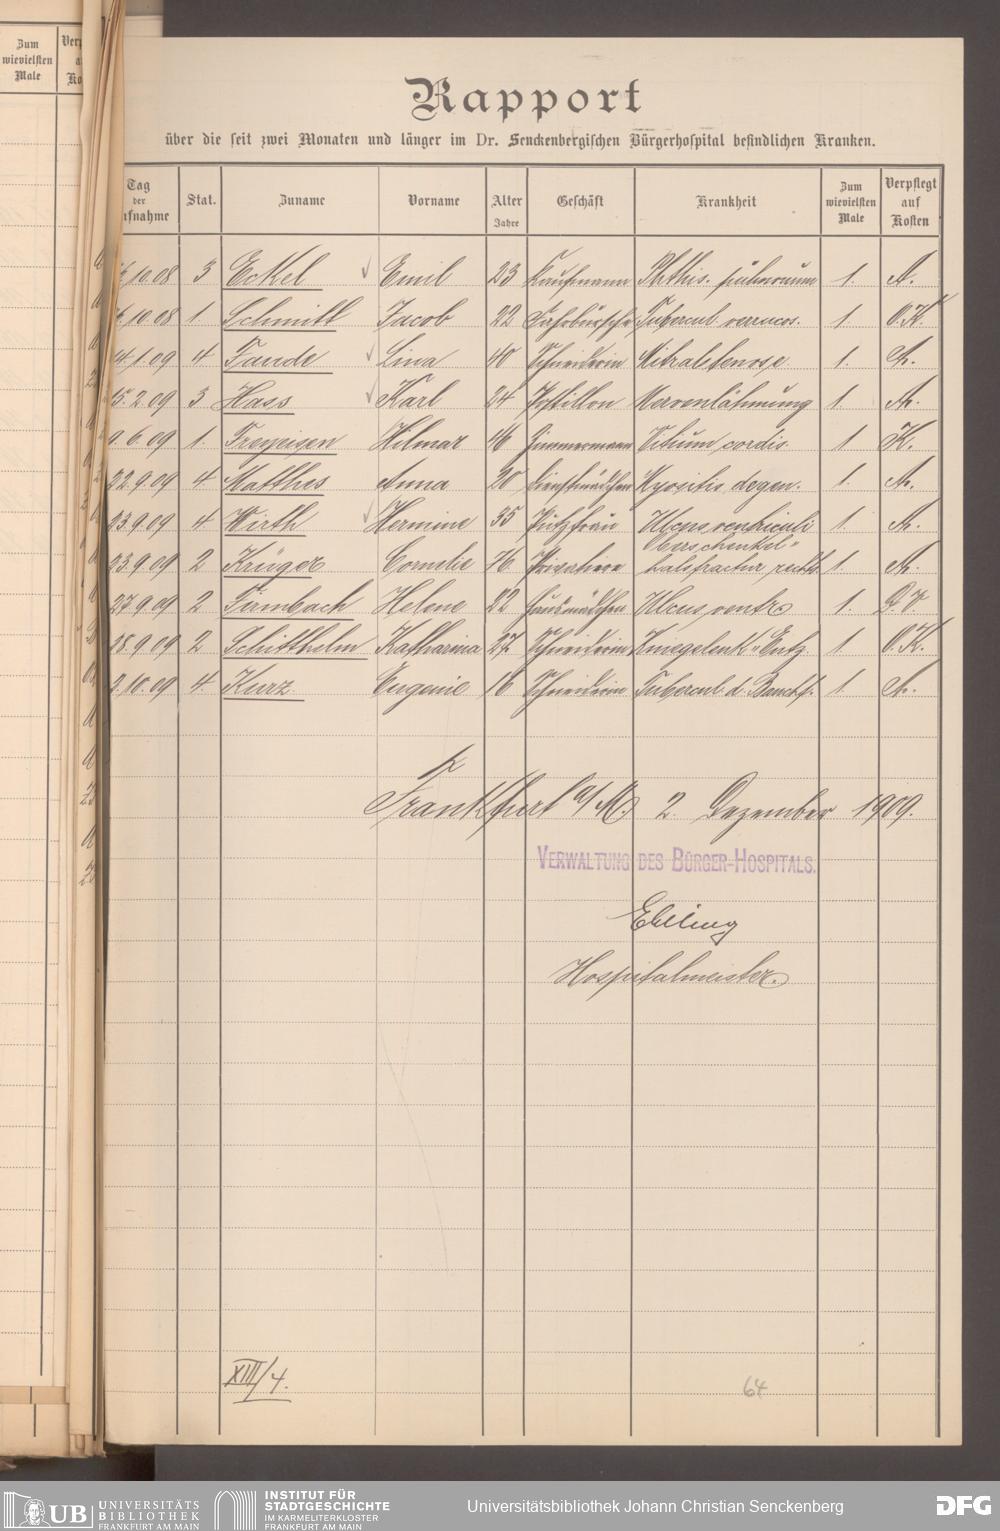 Zum
wievielsten
Male
Rapport
über die seit zwei Monaten und länger im Dr. Senckenbergischen Bürgerhospital befindlichen Kranken.
Tag der ufnahme Stat. Zuname Vorname Alter Jahre Geschäft Krankheit Zum wievielsten Male Verpflegt auf Kosten
10.08 3 Eckel Emil 23 Kaufmann Phthis. pulmonum 1. A.
10.08 1 Schmitt Jacob 22 Fahrbursche Tubercul. verrucos. 1 O.K.
4.1.09 4 Lina 40 Schneiderin Mitralstenose 1. A.
15.2.09 3 Hass Karl 24 Postillon Nervenlähmung 1. A.
9.6.09 1. Freyeisen Hilmar 46 Zimmermann Vitium cordis. 1 K.
22.9.09 4 Matthes Anna 20 Dienstmädchen Myositis degen. 1. A.
23.9.09 4 Wirth Hermine 35 Putzfrau Ulcus ventriculi 1. A.
23.9.09 2 Krüger Cornelie 76 Privatiere Oberschenkel" halsfractur rechts 1. A.
27.9.09 2 Firmbach Helene 22 Hausmädchen Ulcus ventr. 1.
28.9.09 2 Schitthelm Katharina 27 Schneiderin Kniegelenk" Entz. 1. O.K.
2.10.09 4 Kurz Eugenie 16 Schneiderin Tubercul. d. Bauchf. 1. A.
Frankfurt a/M. 2. Dezember 1909.
VERWALTUNG DES BÜRGER-HOSPITALS.
Ebling
Hospitalmeister.
XIII/4.
64
UB UNIVERSITÄTS
BIBLIOTHEK
FRANKFURT AM MAIN
INSTITUT FÜR
STADTGESCHICHTE
IM KARMELITERKLOSTER
FRANKFURT AM MAIN
Universitätsbibliothek Johann Christian Senckenberg
DFG